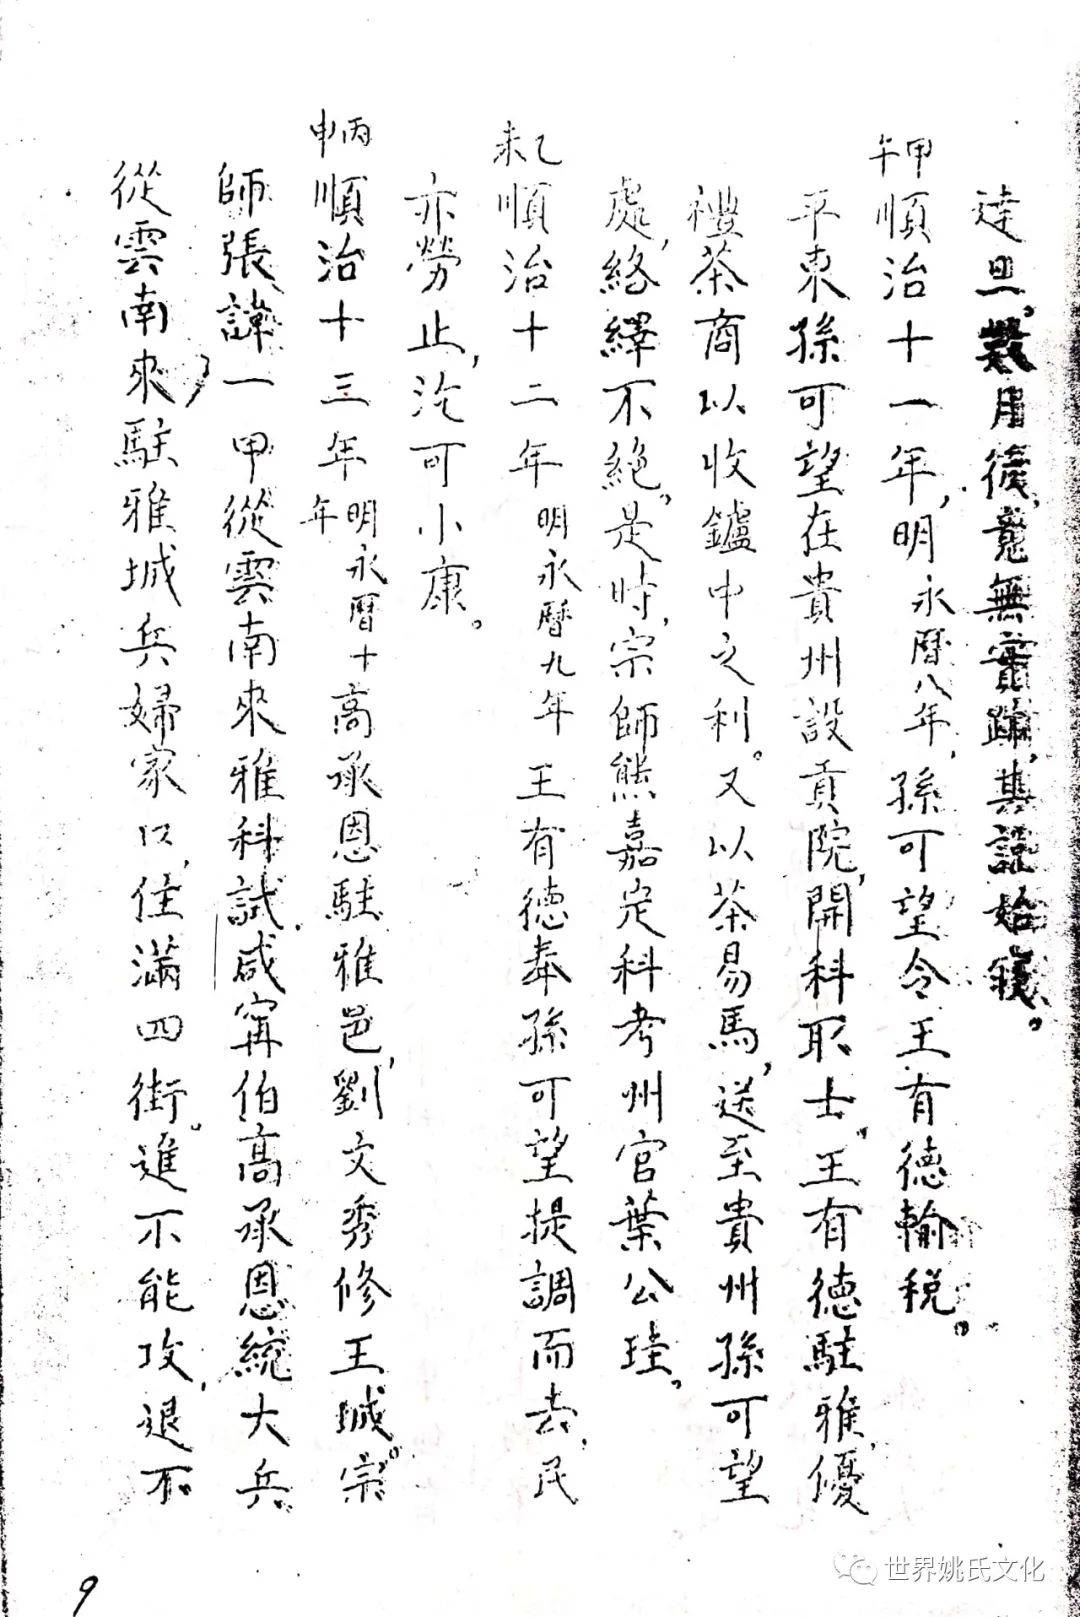 達旦，數月後，竟無實蹟，其說始寢。
甲午
順治十一年，明永曆八年，孫可望令王有德輸稅。
平東孫可望在貴州設貢院，開科取士。王有德駐雅，優
禮茶商以收鑪中之利。又以茶易馬，送至貴州孫可望
處，絡繹不絕。是時，宗師熊嘉定科考州官葉公珪。
乙未
順治十二年明永曆九年王有德奉孫可望提調而去，民
亦勞止，汔可小康。
丙申
順治十三年明永曆十年高承恩駐雅邑，劉文秀修王城。宗
師張諱一甲從雲南來雅科試。咸甯伯高承恩統大兵
從雲南來，駐雅城兵婦家口，住滿四街。進不能攻，退不
9
世界姚氏文化